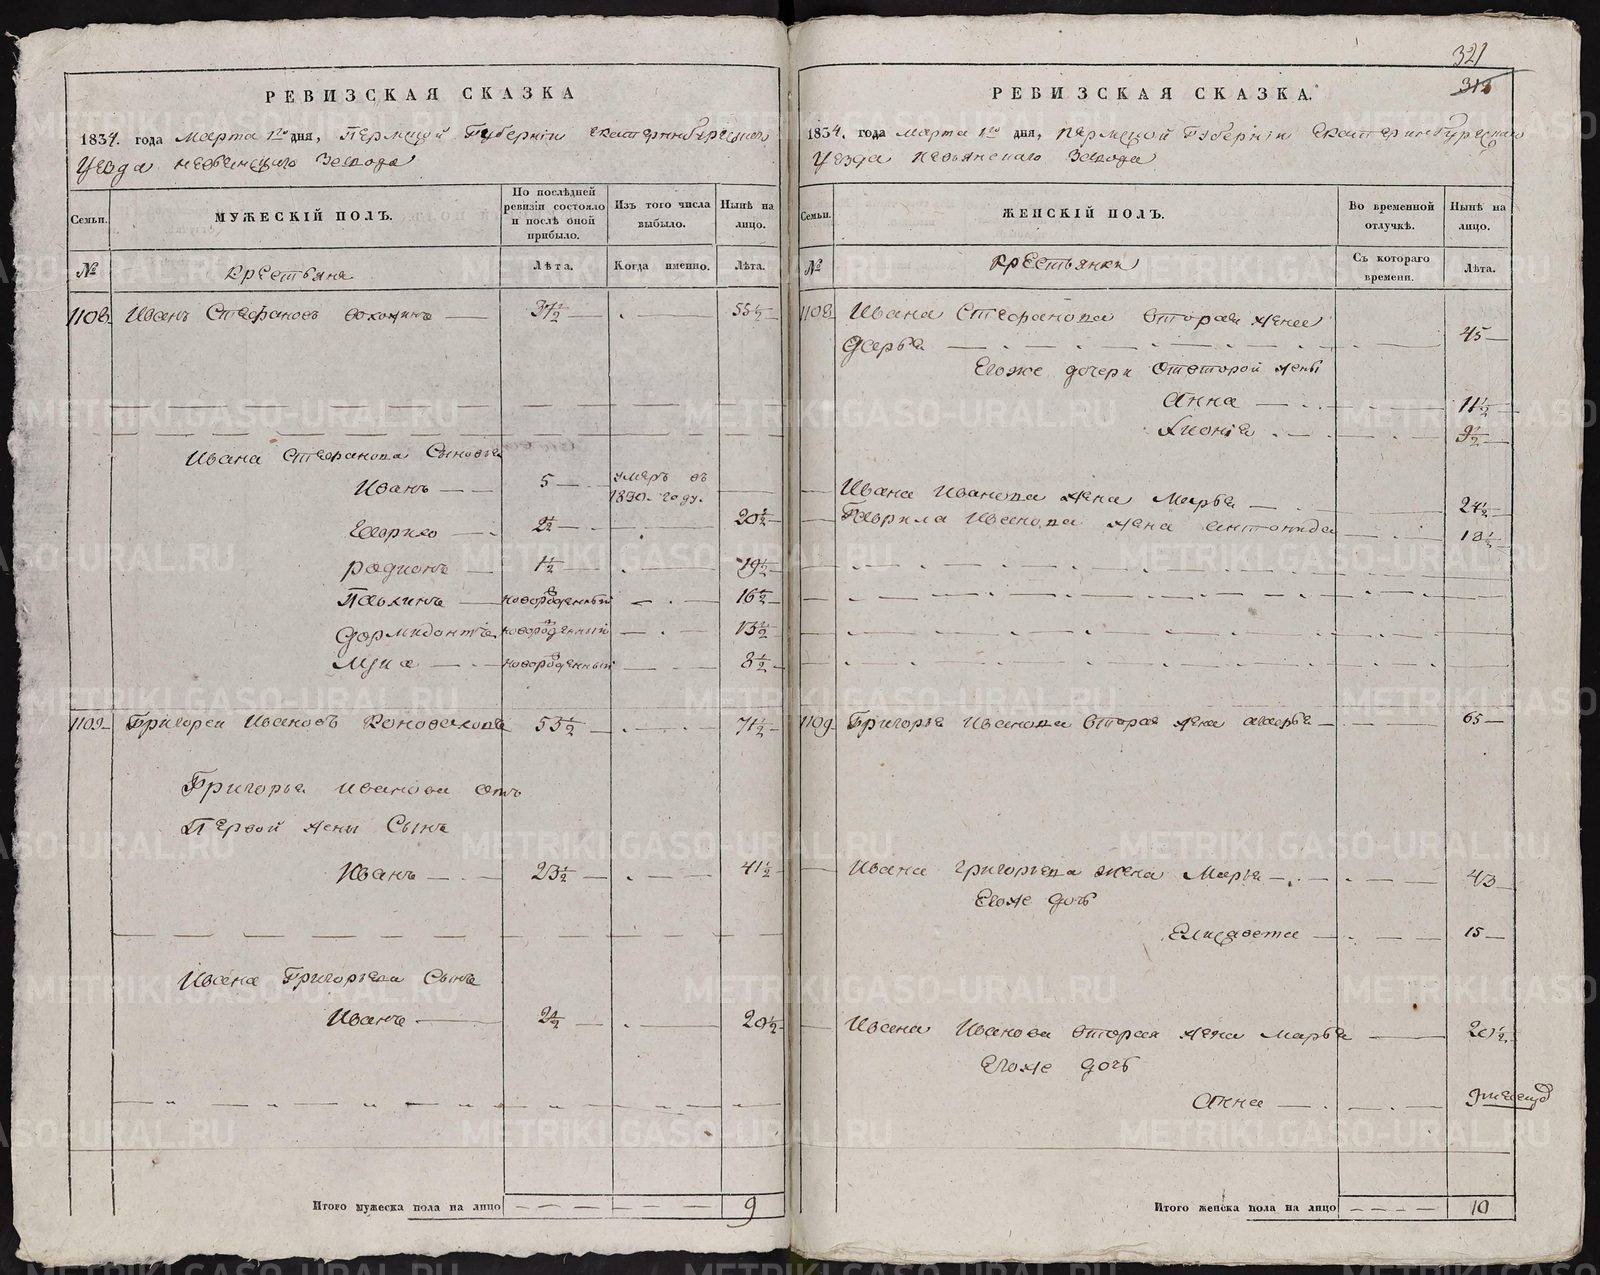 РЕВИЗСКАЯ СКАЗКА
1834. года Марта 1го дня, Пермской Губернии Екатеринбургскаго
Уезда Невьянскаго Завода
Семьи.
МУЖЕСКІЙ ПОЛЪ.
По послѣдней ревизіи состояло и послѣ оной прибыло.
Изъ того числа выбыло.
Нынѣ на лицо.
№
Крестьяне
Лѣта.
Когда именно.
Лѣта.
1108 Иванъ Стефановъ 37½ 55½
Ивана Стефанова Сыновья
Иванъ 5 умеръ въ 1830. году.
Гаврило 2½ 20½
Родионъ 1½ 19½
Павлинъ новорожденный 16½
Дормидонтъ новорожденный 13½
новорожденный 8½
1109 Григорей Ивановъ Коновалова 53½ 71½
Григорья Иванова отъ
Первой жены Сынъ
Иванъ 23½ 41½
Ивана Григорьева Сынъ
Иванъ 2½ 20½
Итого мужеска пола на лицо 9
321
РЕВИЗСКАЯ СКАЗКА.
1834. года Марта 1го дня, Пермской Губерніи Екатеринбургскаго
Уезда Невьянскаго Завода
Семьи.
ЖЕНСКІЙ ПОЛЪ.
Во временной отлучкѣ.
Нынѣ на лицо.
№
Крестьянки
Съ котораго времени.
Лѣта.
1108 Ивана Стефанова вторая жена
Дарья 45
Егоже дочери отвторой жены
Анна 11½
Хионія 9½
Ивана Иванова жена Марья 24½
Гаврила Иванова жена Антонида 18½
1109 Григорья Иванова вторая жена Марья 65
Ивана Григорьева жена Марья 43
Егоже дочь
Елисавета 15
Ивана Иванова вторая жена Марья 20½
Егоже дочь
Анна
Итого женска пола на лицо 10
METRIKI.GASO-URAL.RU